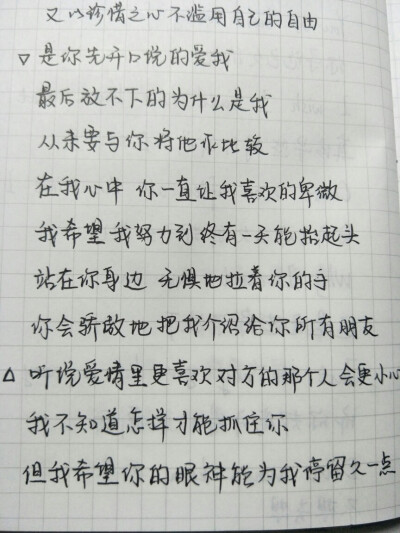 又以珍惜之心不滥用自己的自由
▽ 是你先开口说的爱我
最后放不下的为什么是我
从未要与你将他来比较
在我心中 你一直让我喜欢的卑微
我希望我努力到终有一天能抬起头
站在你身边 无惧地拉着你的手
你会骄傲地把我介绍给你所有朋友
△ 听说爱情里更喜欢对方的那个人会更小心
我不知道怎样才能抓住你
但我希望你的眼神能为我停留久一点